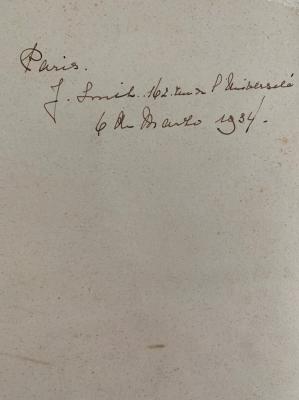 Paris.
J. Smith. 162. rue de l'Université
6 de Marzo 1934.